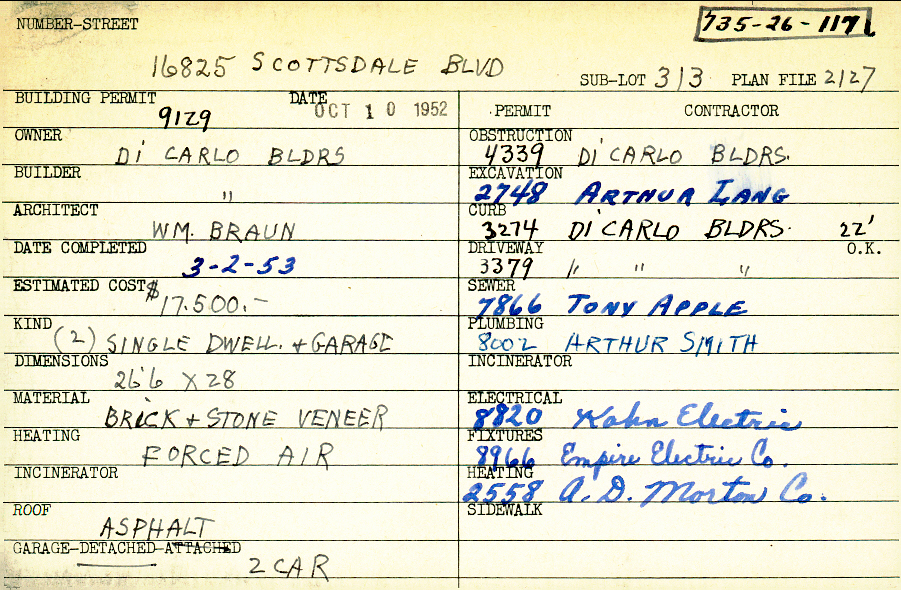 NUMBER-STREET
735-26-117
16825 SCOTTSDALE BLVD
SUB-LOT 313 PLAN FILE 2127
BUILDING PERMIT 9129 DATE OCT 10 1952
PERMIT CONTRACTOR
OWNER DI CARLO BLDRS
OBSTRUCTION 4339 DI CARLO BLDRS.
BUILDER "
EXCAVATION 2748 ARTHUR LANG
ARCHITECT WM. BRAUN
CURB 3274 DI CARLO BLDRS. 22'
DATE COMPLETED 3-2-53
DRIVEWAY 3379 " " " O.K.
ESTIMATED COST $17.500.-
SEWER 7866 TONY APPLE
KIND (2) SINGLE DWELL. + GARAGE
PLUMBING 8002 ARTHUR SMITH
DIMENSIONS 26'6 X 28
INCINERATOR
MATERIAL BRICK + STONE VENEER
ELECTRICAL 8820 Kahn Electric
HEATING FORCED AIR
FIXTURES 8966 Empire Electric Co.
INCINERATOR
HEATING 2558 A. D. Morton Co.
ROOF ASPHALT
SIDEWALK
GARAGE-DETACHED-ATTACHED 2 CAR